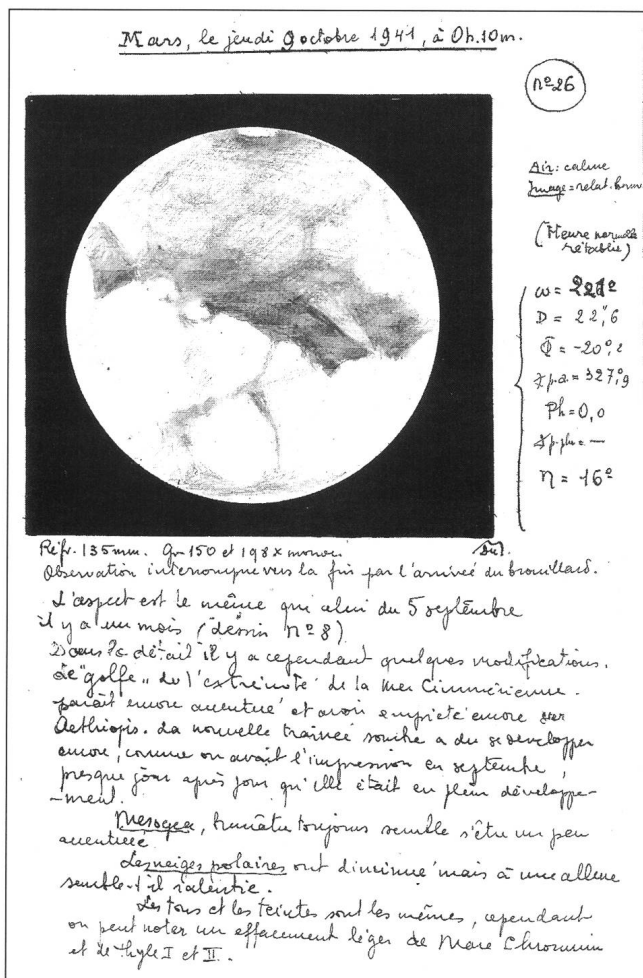 Mars, le jeudi 9 octobre 1941, à 0h.10m.
nº 26
Air: calme
Image = relat. bonne
(Heure normale
rétablie)
ω = 221º
D = 22",6
Φ = -20º,2
p.a. = 327º,9
Ph = 0,0
η = 16º
Réfr. 135mm. Gr. 150 et 198 x monoc.
Observation interrompue vers la fin par l'arrivée du brouillard.
L'aspect est le même que celui du 5 septembre
il y a un mois (dessin nº 8)
Dans le détail il y a cependant quelques modifications.
Le "golfe" de l'extrémité de la Mer Cimmérienne.
paraît encore accentué et avoir empiété encore sur
Aethiopis. La nouvelle traînée sombre a du se developper
encore, comme on avait l'impression en septembre,
presque jour après jour qu'elle était en plein développe-
-ment.
Mesogea, brunâtre toujours semble s'être un peu
accentuée
Les neiges polaires ont diminué mais à une allure
semble-t-il ralentie.
Les tons et les teintes sont les mêmes, cependant
on peut noter un effacement léger de Mare Chronium
et de Thyle I et II.